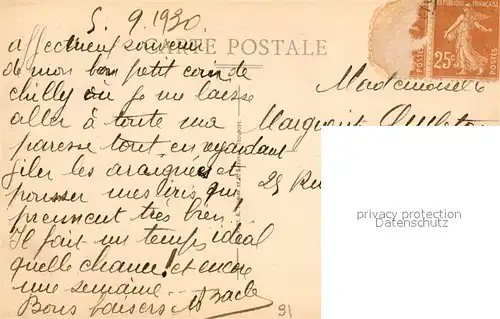 5. 9. 1930
CARTE POSTALE
RÉPUBLIQUE FRANÇAISE
POSTES
25c
POSTES
affectueux souvenir
de mon bon petit coin de
Chilly où je me laisse
aller à toute ma
paresse tout en regardant
filer les araignées et
pousser mes iris qui
prennent très bien !
Il fait un temps idéal
quelle chance ! et encore
une semaine...
Bons baisers
Mademoiselle
25 Ru
privacy protection
Datenschutz
91